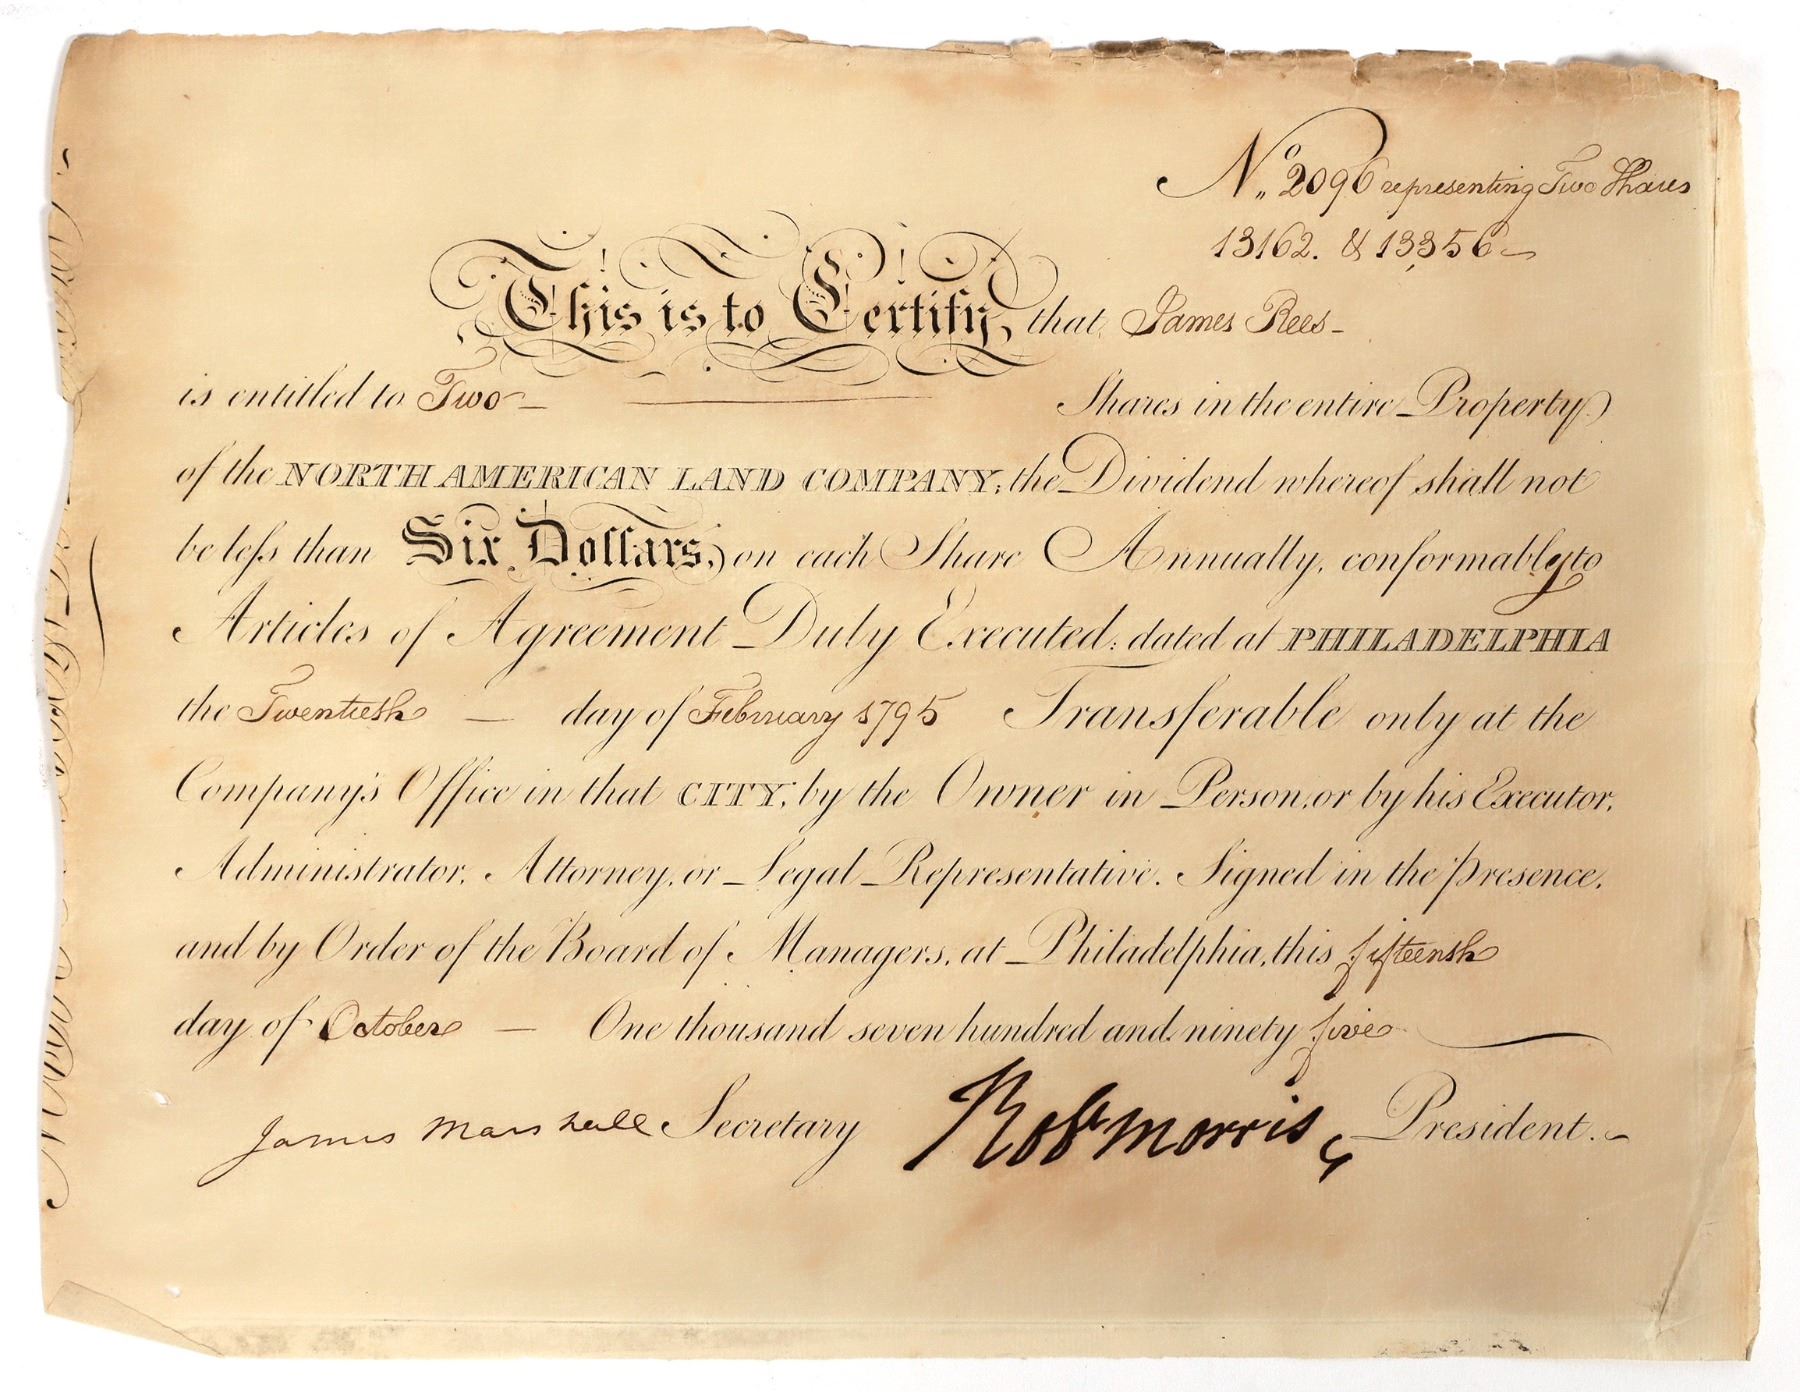 No. 2096 representing Two Shares
13162. & 13356
This is to Certify, that James Rees
is entitled to Two Shares in the entire Property
of the NORTH AMERICAN LAND COMPANY; the Dividend whereof shall not
be leſs than Six Dollars, on each Share Annually, conformably to
Articles of Agreement Duly Executed: dated at PHILADELPHIA
the Twentieth day of February 1795 Transferable only at the
Company's Office in that CITY, by the Owner in Person, or by his Executor,
Administrator, Attorney, or Legal Representative. Signed in the presence,
and by Order of the Board of Managers, at Philadelphia, this fifteenth
day of October One thousand seven hundred and ninety five
James Marshall Secretary Robt Morris, President.